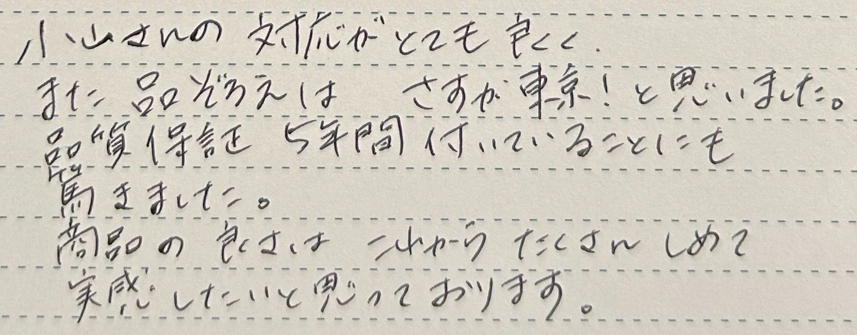 小山さんの 対応がとても良くく.
また 品ぞろえは さすが東京!と思いました。
品質保証 5年間付いていることにも
驚きました。
商品の良さは これから たくさん しめて
実感したいと思っております。